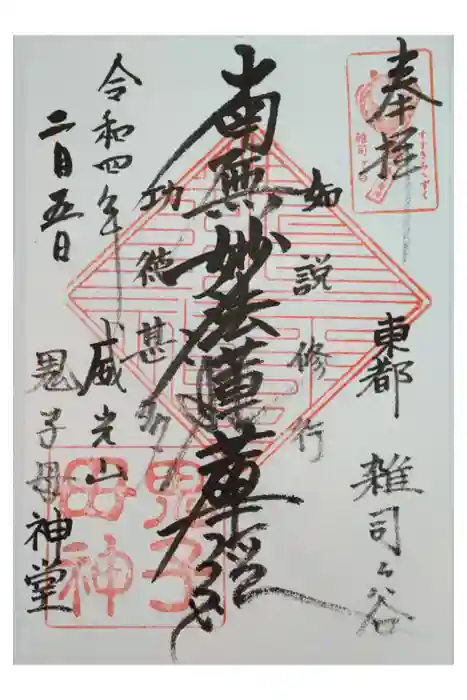 奉拝
すすきみみずく
雑司ヶ谷
東都 雑司ヶ谷
如説修行
南無妙法蓮華経
功徳甚多
令和四年
二月五日
威光山
鬼子母神堂
鬼子
母神